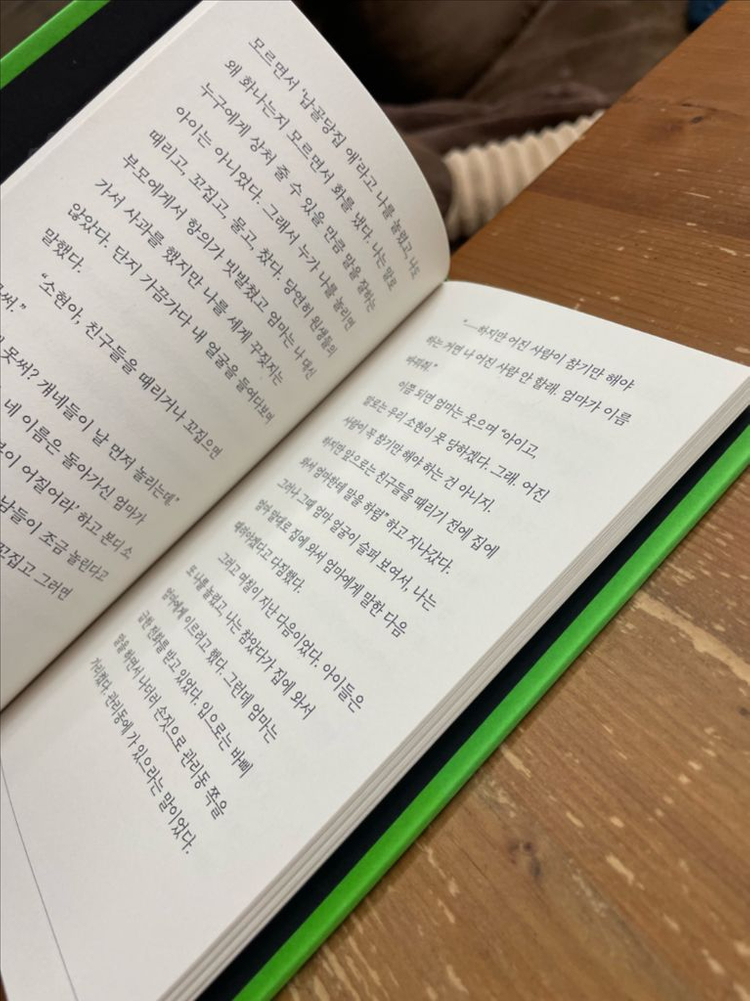 모르면서 ‘납골당집 애’라고 나를 놀렸고, 나도
왜 화나는지 모르면서 화를 냈다. 나는 말로
누구에게 상처 줄 수 있을 만큼 말을 잘하는
아이는 아니었다. 그래서 누가 나를 놀리면
때리고, 꼬집고, 물고, 찼다. 당연히 원생들의
부모에게서 항의가 빗발쳤고 엄마는 나 대신
가서 사과를 했지만 나를 세게 꾸짖지는
않았다. 단지 가끔가다 내 얼굴을 들여다보며
말했다.
“소현아, 친구들을 때리거나 꼬집으면
못써.”
못써? 걔네들이 날 먼저 놀리는데.”
네 이름은 돌아가신 엄마가
어질어라’ 하고 본디 소
남들이 조금 놀린다고
꼬집고 그러면
“―하지만 어진 사람이 참기만 해야
하는 거면 나 어진 사람 안 할래. 엄마가 이름
바꿔줘.”
이쯤 되면 엄마는 웃으며 “아이고,
말로는 우리 소현이 못 당하겠다. 그래. 어진
사람이 꼭 참기만 해야 하는 건 아니지.
하지만 앞으로는 친구들을 때리기 전에 집에
와서 엄마한테 말을 하렴” 하고 지나갔다.
그러나 그때 엄마 얼굴이 슬퍼 보여서, 나는
엄마 말대로 집에 와서 엄마에게 말한 다음
때려야겠다고 다짐했다.
그러고 며칠이 지난 다음이었다. 아이들은
또 나를 놀렸고, 나는 참았다가 집에 와서
엄마에게 이르려고 했다. 그런데 엄마는
급한 전화를 받고 있었다. 입으로는 바삐
말을 하면서 나더러 손짓으로 관리동 쪽을
가리켰다. 관리동에 가 있으라는 말이었다.